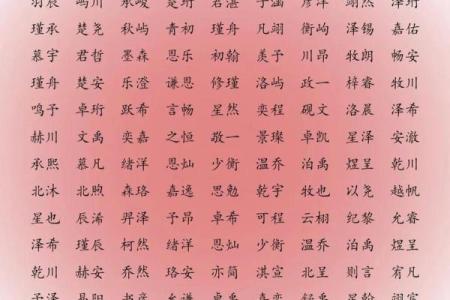 瑾承 楚尧 青初 瑾舟 凡翊 衡屿 泽锡 嘉佑
慕宇 君哲 墨森 恩乐 初翰 羡予 川昂 牧朗 畅安
瑾舟 楚安 乐澄 谦恩 修瑾 洛屿 政一 梓睿 牧川
鸣予 卓珩 跃希 言畅 星然 奕程 砚文 洛晨 泽希
赫川 文禹 奕嘉 之恒 敬一 景璨 卓凯 星泽 安澈
承熙 慕凡 绪洋 恩灿 少衡 温乔 泊禹 煜呈 乾川
北沐 北煦 森珞 嘉逸 思勉 乾宇 牧也 以尧 越帆
星也 辰浠 羿泽 予昂 卓希 可程 云栩 纪黎 允睿
泽希 瑾辰 柯然 绪洋 恩灿 少衡 温乔 泊禹 煜呈
乾川 赫安 乔然 珞安 亦简 淇宣 北呈 则言 宥凡